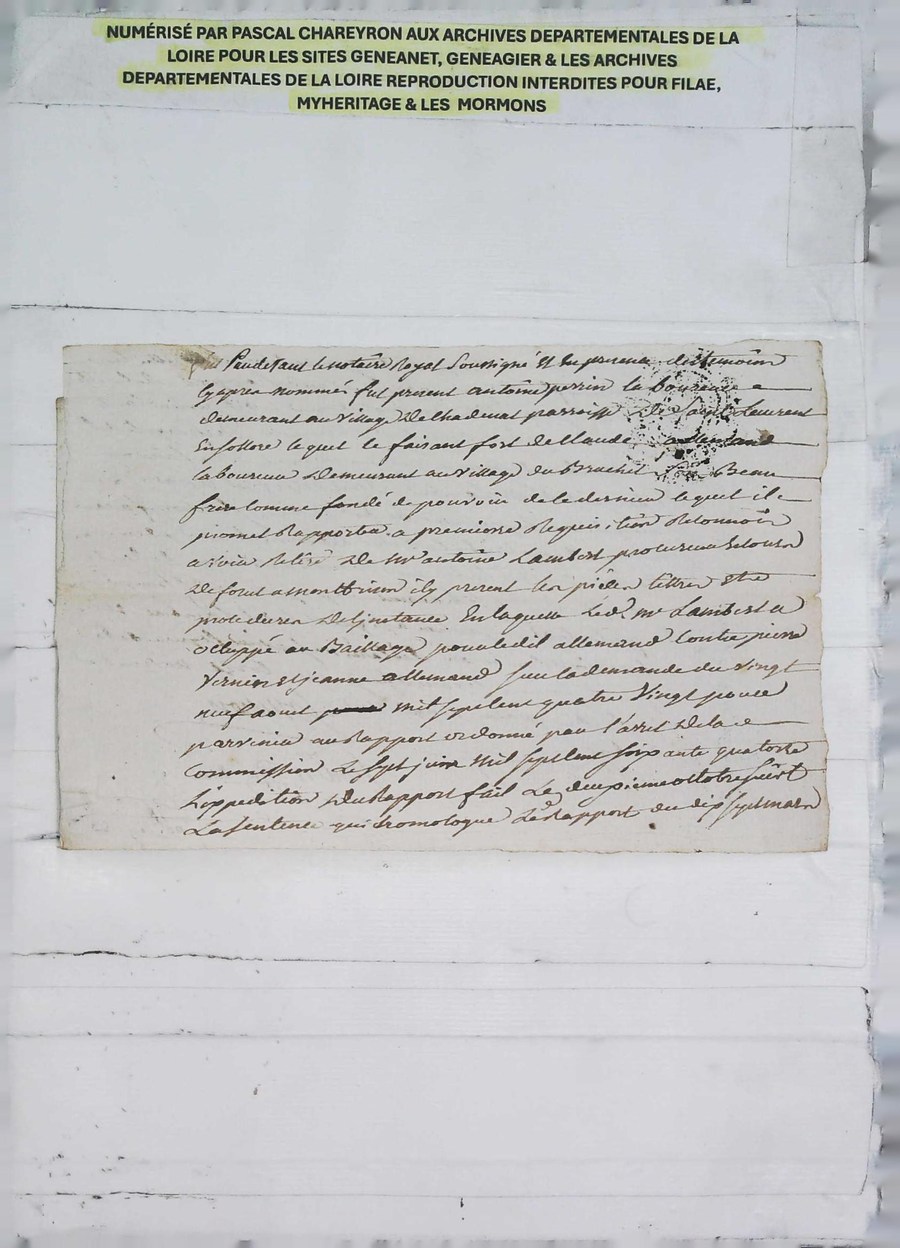 NUMÉRISÉ PAR PASCAL CHAREYRON AUX ARCHIVES DEPARTEMENTALES DE LA
LOIRE POUR LES SITES GENEANET, GENEAGIER & LES ARCHIVES
DEPARTEMENTALES DE LA LOIRE REPRODUCTION INTERDITES POUR FILAE,
MYHERITAGE & LES MORMONS
Pardevant le notaire Royal Soussigné et en presence des temoins
cy apres nommés fut present antoine perrin laboureur
demeurant au village de chadenat parroisse de saint Laurent
lequel se faisant fort de Claude allemand
laboureur demeurant au village du Bruchet son Beau
frere comme fondé de pouvoir de ce dernier lequel il
promet Rapporter a premiere Requisition Reconnoit
avoir Retiré de mr antoine Lambert procureur
de forest a montbrison icy present les pieces titres et
procedures de l'instance En laquelle Led. mr Lambert a
occuppé au Baillage pour ledit allemand contre pierre
Vernin et jeanne allemand sur la demande du vingt
neuf aout mil sept cent quatre vingt pour
parvenir au Rapport ordonné par l'arret de la
Commission Le sept juin mil sept cent soixante quatorze
L'expedition du Rapport fait Le deuxieme octobre suivt
La sentence qui homologue Led Rapport du dix sept mars